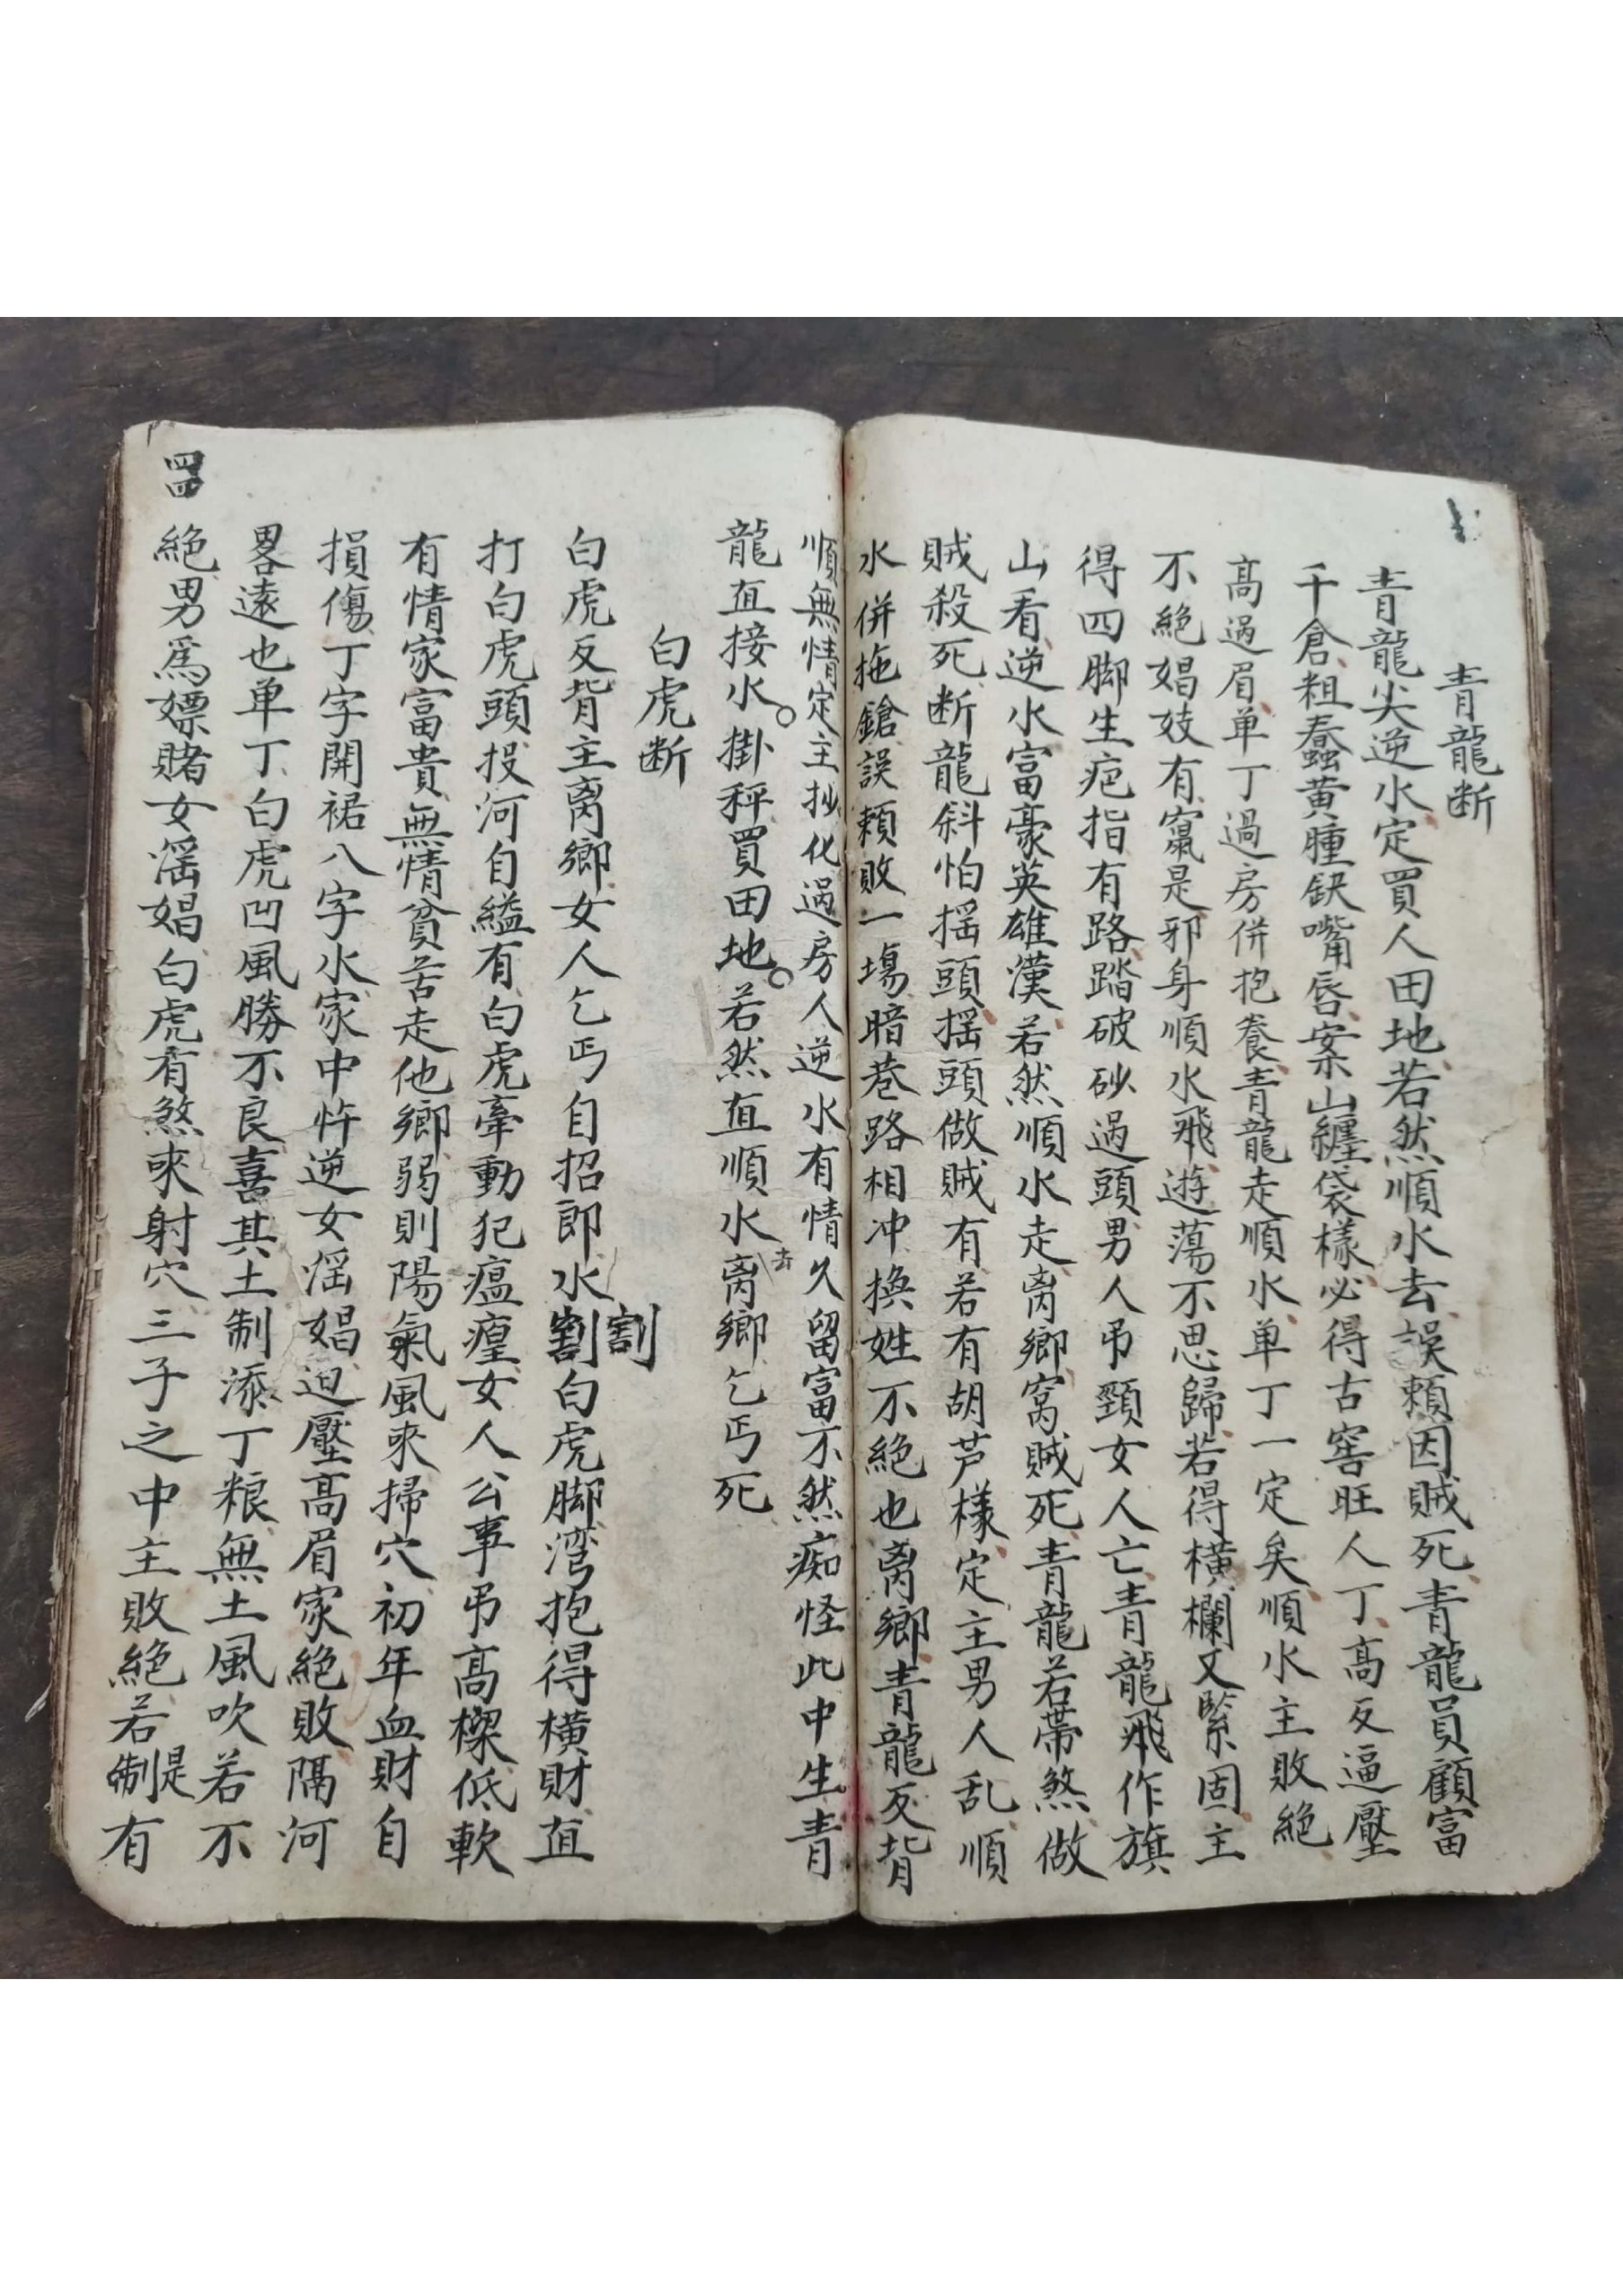 青龍断
青龍尖逆水定買人田地若然順水去誤賴因賊死青龍員顧富
千倉粗蠢黃腫缺嘴唇案山纏袋樣必得古窖旺人丁高反逼壓
高過眉单丁過房併抱養青龍走順水单丁一定矣順水主敗絕
不絕娼妓有窰是邪身順水飛遊蕩不思歸若得橫欄又緊固主
得四脚生疤指有路踏破砂過頭男人弔頸女人亡青龍飛作旗
山看逆水富豪英雄漢若然順水走离鄉窝賊死青龍若帶煞做
賊殺死断龍斜怕揺頭揺頭做賊有若有胡芦樣定主男人乱順
水併拖鎗誤賴敗一塲暗巷路相冲換姓不絕也离鄉青龍反背
順無情定主抄化過房人逆水有情久留富不然痴怪此中生青
龍直接水掛秤買田地若然直順水去离鄉乞丐死
白虎断
白虎反背主离鄉女人乞丐自招郎水割割白虎脚湾抱得橫財直
打白虎頭投河自縊有白虎牽動犯瘟瘟女人公事弔高樑低軟
有情家富貴無情貧苦走他鄉弱則陽氣風来掃穴初年血財自
損傷丁字開裙八字水家中忤逆女淫娼迫壓高眉家絕敗隔河
畧遠也单丁白虎凹風勝不良喜其土制添丁粮無土風吹若不
絕男為嫖賭女淫娼白虎有煞来射穴三子之中主敗絕若制是有
四四